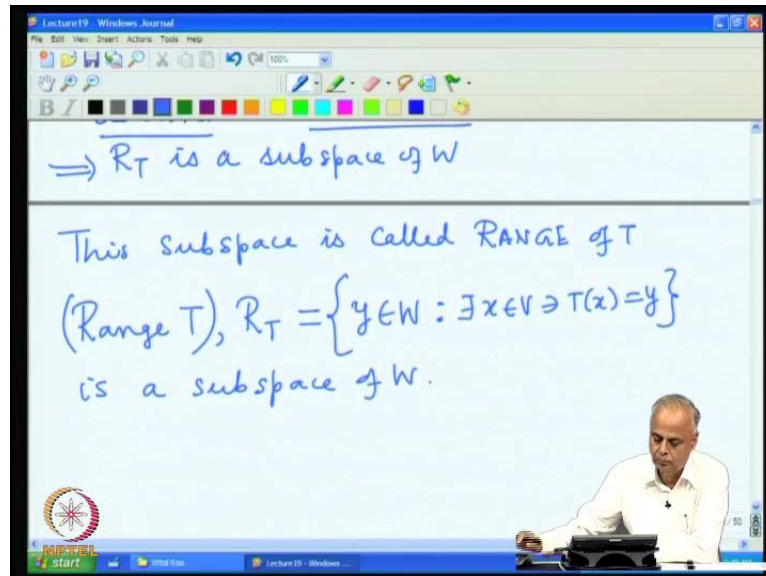 Lecture19 - Windows Journal
File Edit View Insert Actions Tools Help
100%
B I
⟹ R_T is a subspace of W
This subspace is called RANGE of T
(Range T), R_T = {y ∈ W : ∃ x ∈ V ∋ T(x) = y}
is a subspace of W.
/ 50
NPTEL
start
Vittal Rao
Lecture19 - Windows ...